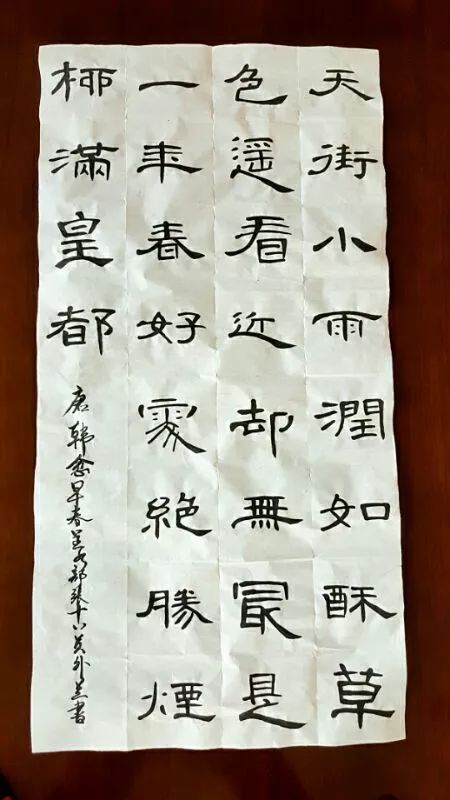 天街小雨潤如酥草
色遥看近却無最是
一年春好處絶勝煙
柳滿皇都
唐韓愈早春呈水部張十八員外兰書